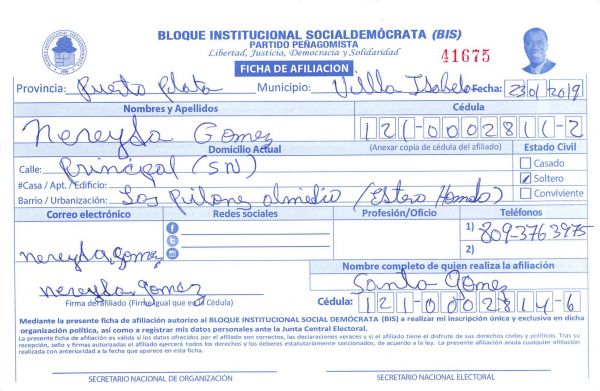 BLOQUE INSTITUCIONAL SOCIALDEMÓCRATA (BIS)
PARTIDO PEÑAGOMISTA
Libertad, Justicia, Democracia y Solidaridad
41675
FICHA DE AFILIACION
Provincia: Puerto plata Municipio: Villa Isabela Fecha: 23/01/2019
Nombres y Apellidos Cédula
Nereyda Gomez 121-0002811-2
Domicilio Actual (Anexar copia de cédula del afiliado) Estado Civil
Calle: principal (SN) Casado
#Casa / Apt. / Edificio: ✓ Soltero
Barrio / Urbanización: Los pilones almedio (Estero Hondo) Conviviente
Correo electrónico Redes sociales Profesión/Oficio Teléfonos
1) 809-3763975
nereyda gomez 2)
Nombre completo de quien realiza la afiliación
nereyda gomez Santa Gomez
Firma del afiliado (Firme igual que en la Cédula) Cédula: 121-0002814-6
Mediante la presente ficha de afiliación autorizo al BLOQUE INSTITUCIONAL SOCIALDEMÓCRATA (BIS) a realizar mi inscripción única y exclusiva en dicha
organización política, así como a registrar mis datos personales ante la Junta Central Electoral.
La presente ficha de afiliación es válida si los datos ofrecidos por el afiliado son correctos, las declaraciones veraces y si el afiliado tiene el disfrute de sus derechos civiles y políticos. Tras su
recepción, sello y firmas autorizadas el afiliado ejercerá todos los derechos y los deberes estatutariamente sancionados, de acuerdo a la ley. La presente afiliación anula cualquier afiliación
realizada con anterioridad a la fecha que aparece en esta ficha.
SECRETARIO NACIONAL DE ORGANIZACIÓN SECRETARIO NACIONAL ELECTORAL